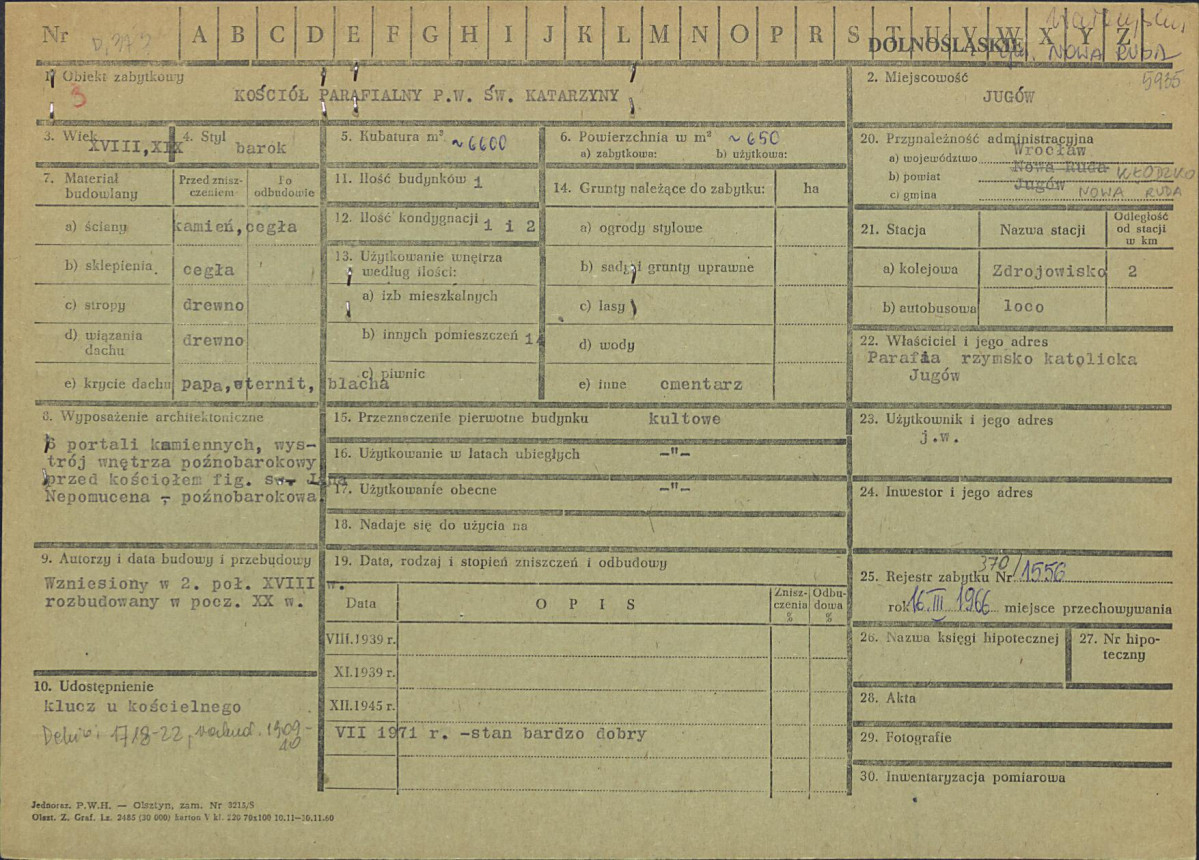 Nr A B C D E F G H I J K Ł M N O P R S T U V W X Y Z
DOLNOŚLĄSKIE
NOWA RUDA
1. Obiekt zabytkowy
3
KOŚCIÓŁ PARAFIALNY P.W. ŚW. KATARZYNY
2. Miejscowość
5935
JUGÓW
3. Wiek
XVIII, XIX
4. Styl
barok
5. Kubatura m².
~6600
6. Powierzchnia w m² ~650
a) zabytkowa: b) użytkowa:
7. Materiał budowlany
Przed zniszczeniem
Po odbudowie
a) ściany kamień, cegła
b) sklepienia cegła
c) stropy drewno
d) wiązania dachu drewno
e) krycie dachu papa, eternit, blacha
8. Wyposażenie architektoniczne
6 portali kamiennych, wys-
trój wnętrza poźnobarokowy
przed kościołem fig. św. Jana
Nepomucena - poźnobarokowa
9. Autorzy i data budowy i przebudowy
Wzniesiony w 2. poł. XVIII w.
rozbudowany w pocz. XX w.
10. Udostępnienie
klucz u kościelnego
1718-22, 1909-
10
11. Ilość budynków 1
12. Ilość kondygnacji 1 i 2
13. Użytkowanie wnętrza
według ilości:
a) izb mieszkalnych
b) innych pomieszczeń 14
c) piwnic
14. Grunty należące do zabytku: ha
a) ogrody stylowe
b) sady i grunty uprawne
c) lasy
d) wody
e) inne cmentarz
15. Przeznaczenie pierwotne budynku kultowe
16. Użytkowanie w latach ubiegłych -"-
17. Użytkowanie obecne -"-
18. Nadaje się do użycia na
19. Data, rodzaj i stopień zniszczeń i odbudowy
Data
OPIS
Zniszczenia %
Odbudowa %
VIII.1939 r.
XI.1939 r.
XII.1945 r.
VII 1971 r. -stan bardzo dobry
20. Przynależność administracyjna
a) województwo Wrocław
b) powiat Nowa Ruda KŁODZKO
c) gmina Jugów NOWA RUDA
21. Stacja
Nazwa stacji
Odległość od stacji w km
a) kolejowa Zdrojowisko 2
b) autobusowa loco
22. Właściciel i jego adres
Parafia rzymsko katolicka
Jugów
23. Użytkownik i jego adres
j.w.
24. Inwestor i jego adres
25. Rejestr zabytku Nr 370/1556
rok 16.III.1966 miejsce przechowywania
26. Nazwa księgi hipotecznej
27. Nr hipoteczny
28. Akta
29. Fotografie
30. Inwentaryzacja pomiarowa
Jednoraz. P.W.H. — Olsztyn, zam. Nr 3215/S
Olszt. Z. Graf. Lz. 2485 (30 000) karton V kl. 220 70x100 10.11—10.11.60